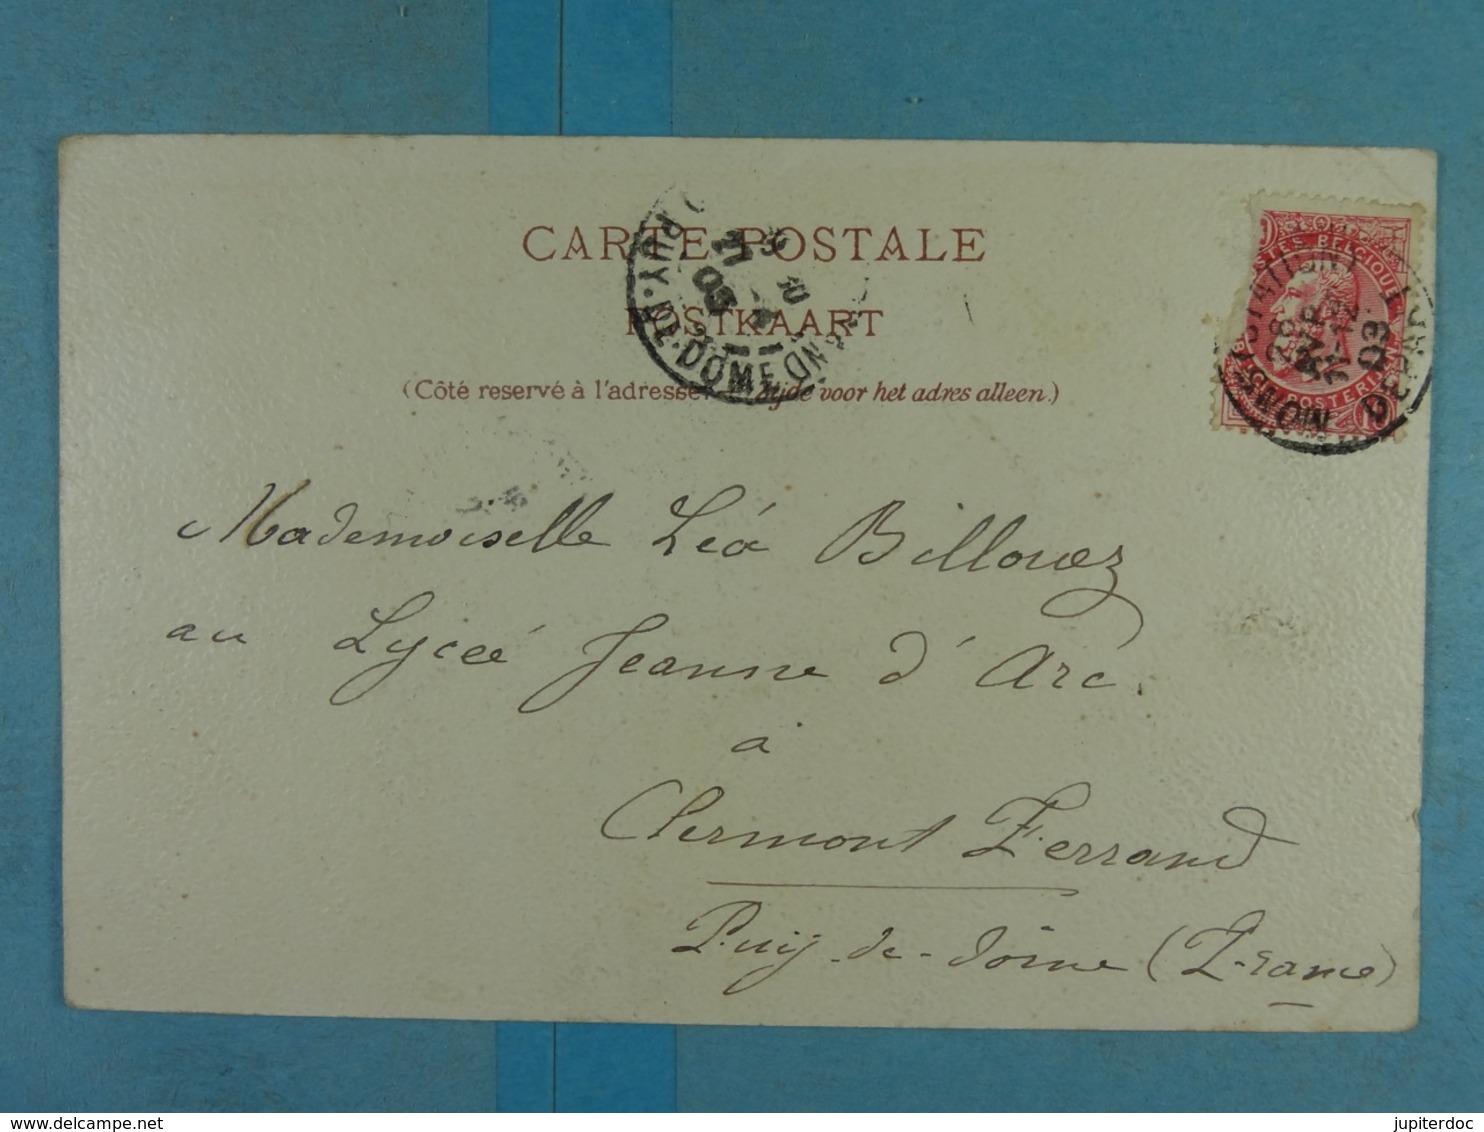 CARTE POSTALE
POSTKAART
(Côté reservé à l'adresse. Zijde voor het adres alleen.)
PUY-DE-DOME
POSTES BELGIQUE
POSTERIJEN
MONS (STATION) DEPART
11-12
03
Mademoiselle Léa Billouez
au Lyceé Jeanne d'Arc.
à
Clermont Ferrand
Puy-de-Dôme (France)
jupiterdoc